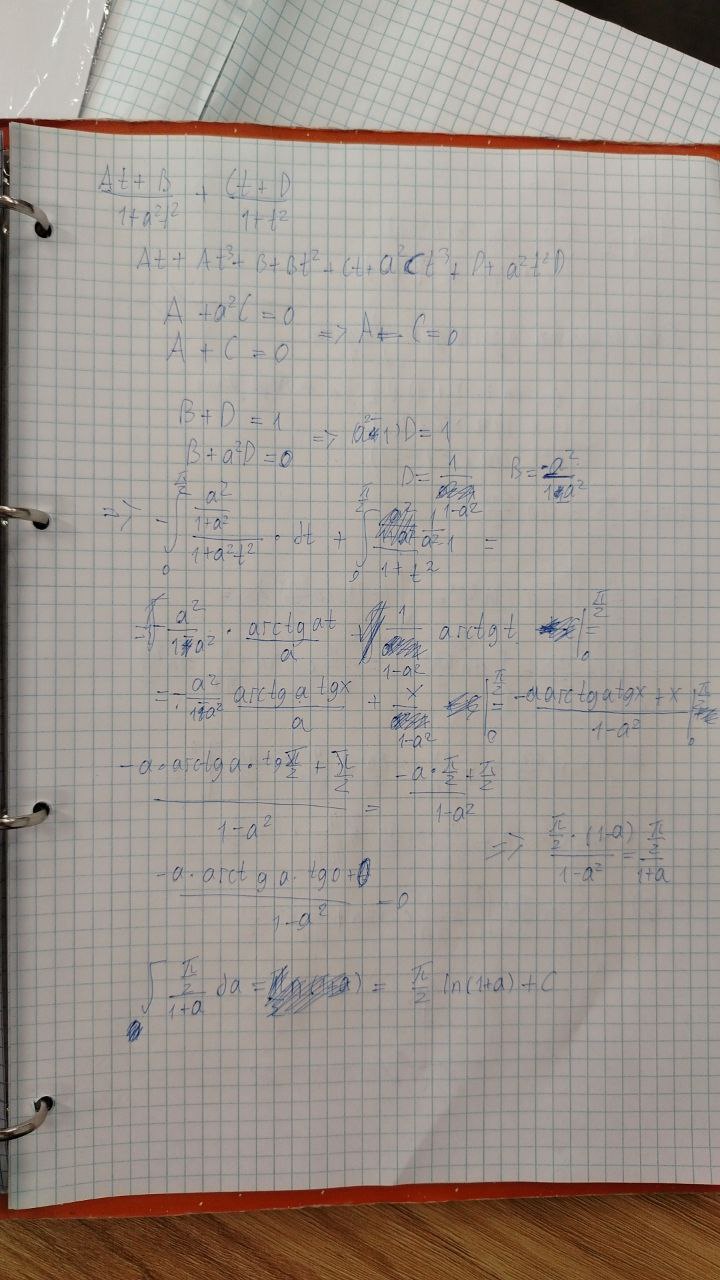 (At + B)/(1+a²t²) + (Ct + D)/(1+t²)
At + At³ + B + Bt² + Ct + a²Ct³ + D + a²t²D
A + a²C = 0
A + C = 0 => A = C = 0
B + D = 1
B + a²D = 0 => (a²-1)D = 1
D = 1/(1-a²) B = -a²/(1-a²)
=> -∫₀^(π/2) (a²/(1+a²))/(1+a²t²) · dt + ∫₀^(π/2) (1/(a²-1))/(1+t²) =
= -a²/(1-a²) · (arctg at)/a 1/(1-a²) arctg t |₀^(π/2) =
= -a²/(1-a²) (arctg a tgx)/a + x/(1-a²) |₀^(π/2) = (-a arctg a tgx + x)/(1-a²) |₀^(π/2)
(-a · arctg a · tg π/2 + π/2)/(1-a²) = (-a · π/2 + π/2)/(1-a²)
=> (π/2 · (1-a))/(1-a²) = (π/2)/(1+a)
(-a · arctg a · tg0 + 0)/(1-a²) = 0
∫ (π/2)/(1+a) da = = π/2 ln(1+a) + C